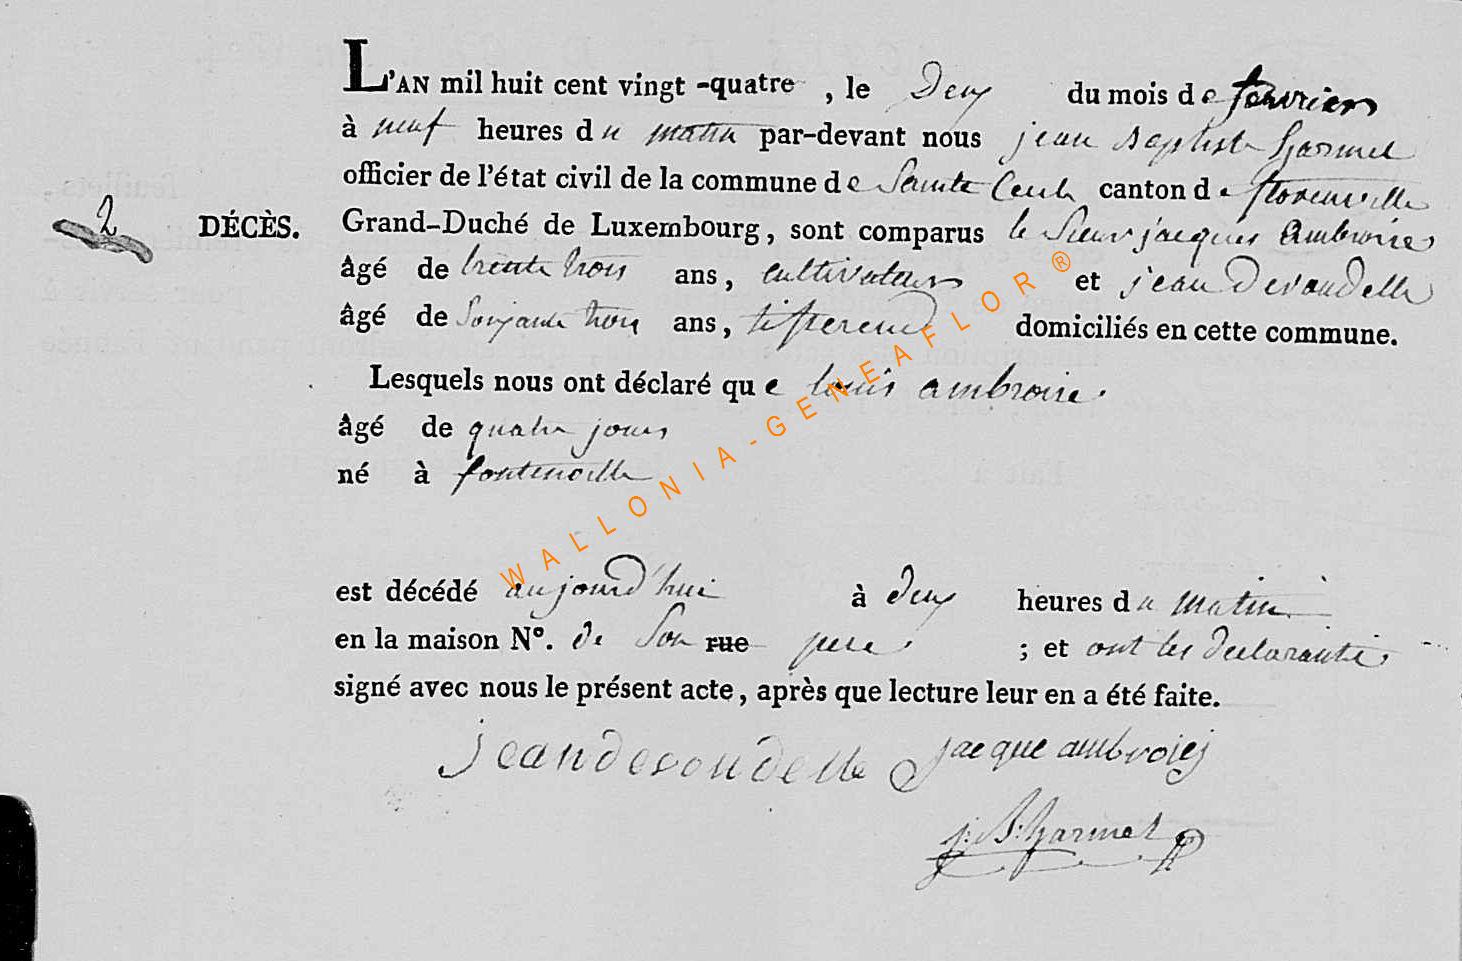 L'AN mil huit cent vingt-quatre, le Deux du mois de fevrier
à neuf heures du matin par-devant nous jean Baptiste harmel
officier de l'état civil de la commune de Sainte Cecile canton de florenville
2 DÉCÈS. Grand-Duché de Luxembourg, sont comparus le Sieur jacques Ambroise
âgé de trente trois ans, cultivateur et jean Desoudelle
âgé de Soixante trois ans, tisserend domiciliés en cette commune.
Lesquels nous ont déclaré que louis ambroise
âgé de quatre jours
né à fontenoille
est décédé aujourd'hui à deux heures du matin
en la maison N°. de Son rue pere ; et ont les declarants
signé avec nous le présent acte, après que lecture leur en a été faite.
jean desoudelle jacque ambroies
j: B: harmel
WALLONIA-GENEAFLOR®